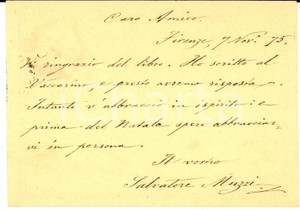 Caro Amico.
Firenze, 7 Nov. 75.
Vi ringrazio del libro. Ho scritto al
Vaccarino, e presto avremo risposta.
Intanto v'abbraccio in ispirito: e
prima del Natale spero abbracciar-
vi in persona.
Il vostro
Salvatore Muzzi.